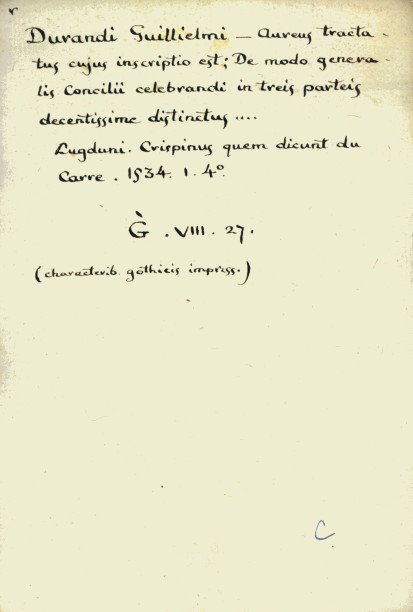 Durandi Guillielmi — Aureus tracta-
tus cujus inscriptio est; De modo genera-
lis Concilii celebrandi in treis parteis
decentissime distinctus ....
Lugduni. Crispinus quem dicunt du
Carre. 1534. 1. 4°.
G̀. VIII. 27.
(characterib. gothicis impress.)
C